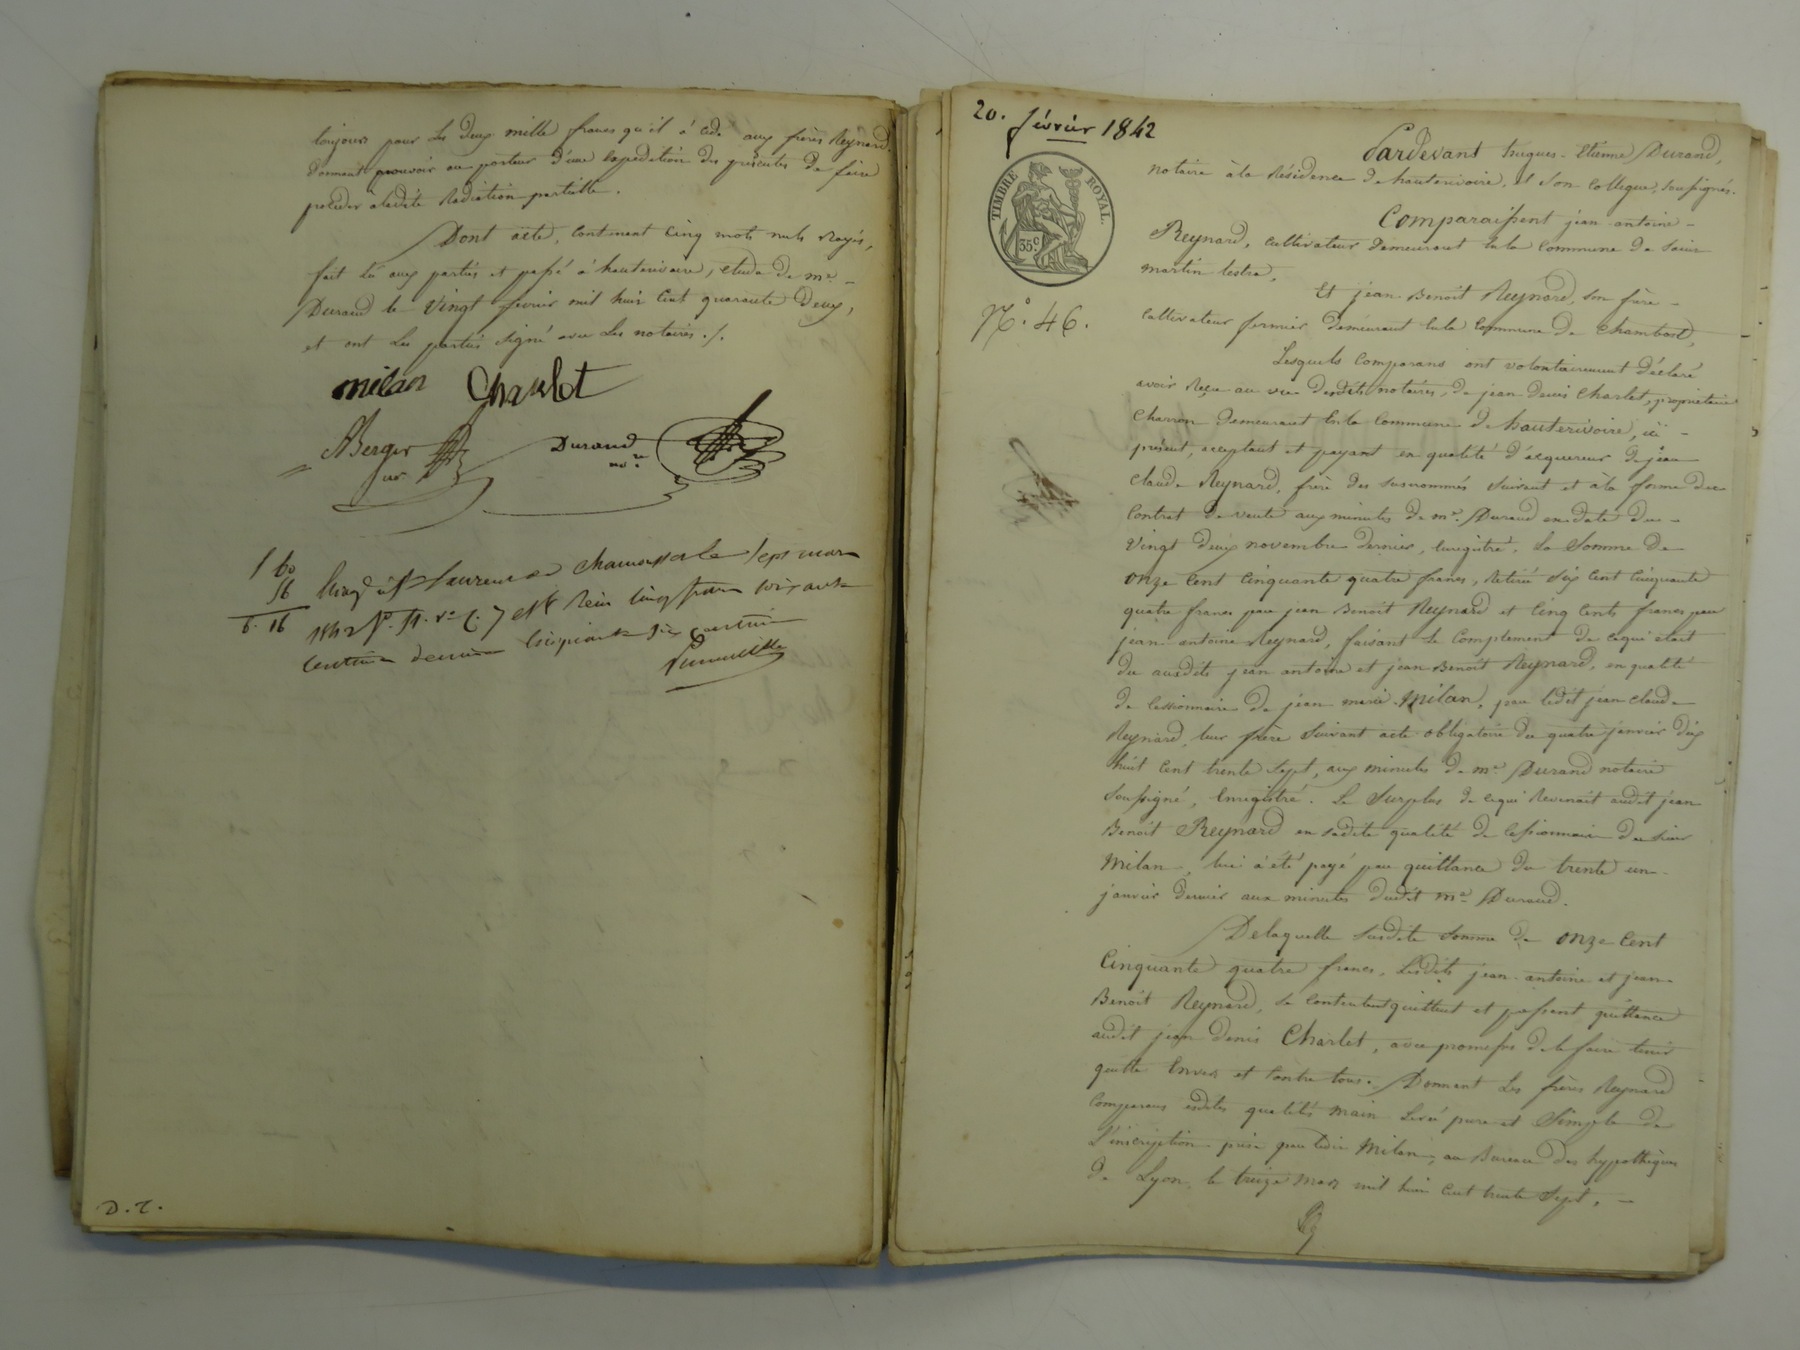 toujours pour les deux mille francs qu'il a cédé aux frères Reynard.
Donnant pouvoir au porteur d'une expédition des présentes de faire
procéder à ladite Radiation partielle.
Dont acte, contenant cinq mots nuls rayés,
fait lu aux parties et passé à hauterivoire, étude de me. -
Durand le vingt février mil huit cent quarante deux,
et ont les parties signé avec les notaires ./.
milan Charlot
ABerger Durand
nore
1 60
56
6. 16
Enregt à St Laurent de Chamousset le sept mars
1842 fo. 71. vo C. 7 et 8 Reçu cinq francs soixante
centimes décime cinquante six centimes
D. T.
20. février 1842
TIMBRE ROYAL.
35 c
No. 46.
Pardevant hugues-Etienne Durand,
notaire à la Résidence de hauterivoire, et son collègue, soussignés.
Comparaissent jean-antoine -
Reynard, cultivateur demeurant en la commune de saint
martin lestra,
Et jean-Benoit Reynard, son frère -
cultivateur fermier demeurant en la commune de Chambost,
Lesquels comparans ont volontairement déclaré
avoir reçu au vu desdits notaires, de jean denis Charlet, propriétaire
charron demeurant en la commune de hauterivoire, ici -
présent, acceptant et payant en qualité d'acquereur de jean
Claude Reynard, frère des susnommés suivant et à la forme du
contrat de vente aux minutes de me. Durand en date du -
vingt deux novembre dernier, enregistré, la somme de
onze cent cinquante quatre francs, retirée six cent cinquante
quatre francs par jean Benoit Reynard et cinq cents francs par
jean-antoine Reynard, faisant le complement de cequi etait
du auxdits jean antoine et jean Benoit Reynard, en qualité
de cessionnaires de jean marie Milan, par ledit jean claude
Reynard, leur frère suivant acte obligatoire du quatre janvier dix
huit cent trente sept, aux minutes de me. Durand notaire
soussigné, enregistré. Le surplus de cequi revenait audit jean
Benoit Reynard en sadite qualité de cessionnaire du sieur
Milan, lui a été payé par quittance du trente un
janvier dernier aux minutes dudit me. Durand.
Delaquelle susdite somme de onze cent
cinquante quatre francs, lesdits jean-antoine et jean-
Benoit Reynard, se contentent quittent et passent quittance
audit jean denis Charlet, avec promesse de le faire tenir
quitte envers et contre tous. Donnant les frères Reynard
comparans esdites qualités main levée pure et simple de
L'inscription prise par ledit Milan, au Bureau des hypothèques
de Lyon, le treize mars mil huit cent trente sept, -